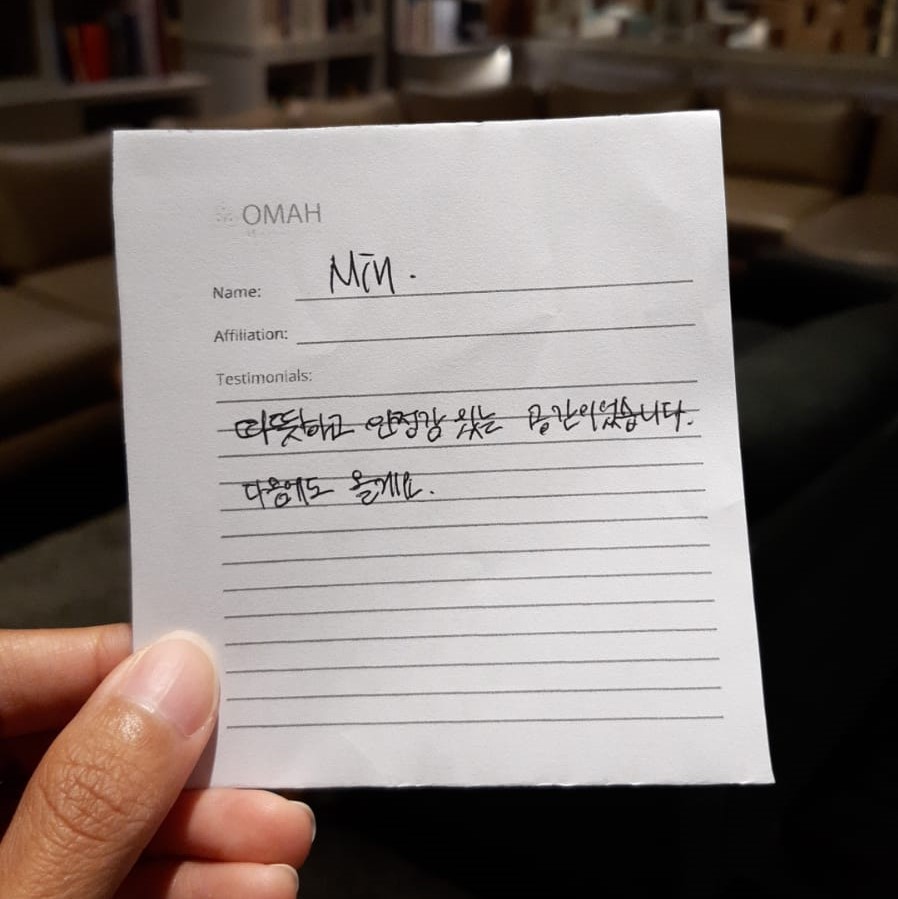 OMAH
Name: Min.
Affiliation:
Testimonials:
따뜻하고 안정감 있는 공간이었습니다.
다음에도 올게요.